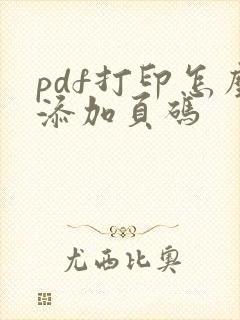 pdf打印怎麼
添加頁碼
尤西比奧